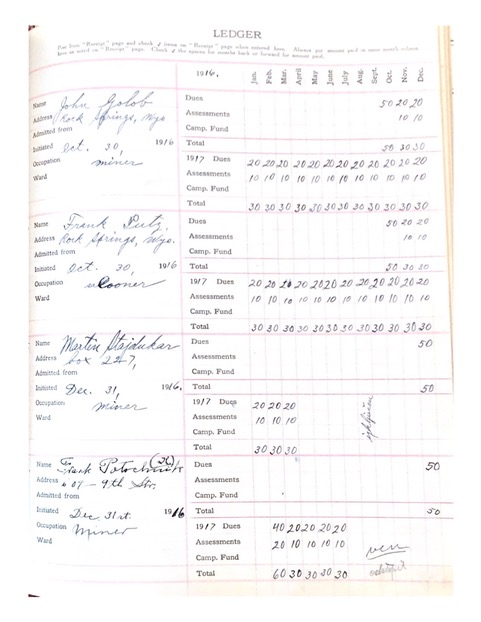 LEDGER
Post from "Receipt" page and check √ items on "Receipt" page when entered here. Always put amount paid in same month column
here as noted on "Receipt" page. Check √ the spaces for months back or forward for amount paid.
1916. Jan. Feb. Mar. April May June July Aug. Sept. Oct. Nov. Dec.
Name John Golob
Address Rock Springs, Wyo
Admitted from
Initiated Oct. 30, 1916
Occupation miner
Ward
Dues 50 20 20
Assessments 10 10
Camp. Fund
Total 50 30 30
1917 Dues 20 20 20 20 20 20 20 20 20 20 20 20
Assessments 10 10 10 10 10 10 10 10 10 10 10 10
Camp. Fund
Total 30 30 30 30 30 30 30 30 30 30 30 30
Name Frank
Address Rock Springs, Wyo.
Admitted from
Initiated Oct. 30, 1916
Occupation
Ward
Dues 50 20 20
Assessments 10 10
Camp. Fund
Total 50 30 30
1917 Dues 20 20 20 20 20 20 20 20 20 20 20 20
Assessments 10 10 10 10 10 10 10 10 10 10 10 10
Camp. Fund
Total 30 30 30 30 30 30 30 30 30 30 30 30
Name Martin Stajduhar
Address box 227,
Admitted from
Initiated Dec. 31, 1916.
Occupation miner
Ward
Dues 50
Assessments
Camp. Fund
Total 50
1917 Dues 20 20 20
Assessments 10 10 10
Camp. Fund
Total 30 30 30
Name Frank
Address 407 – 9th Str.
Admitted from
Initiated Dec. 31st. 1916
Occupation Miner
Ward
Dues 50
Assessments
Camp. Fund
Total 50
1917 Dues 40 20 20 20 20
Assessments 20 10 10 10 10
Camp. Fund
Total 60 30 30 30 30